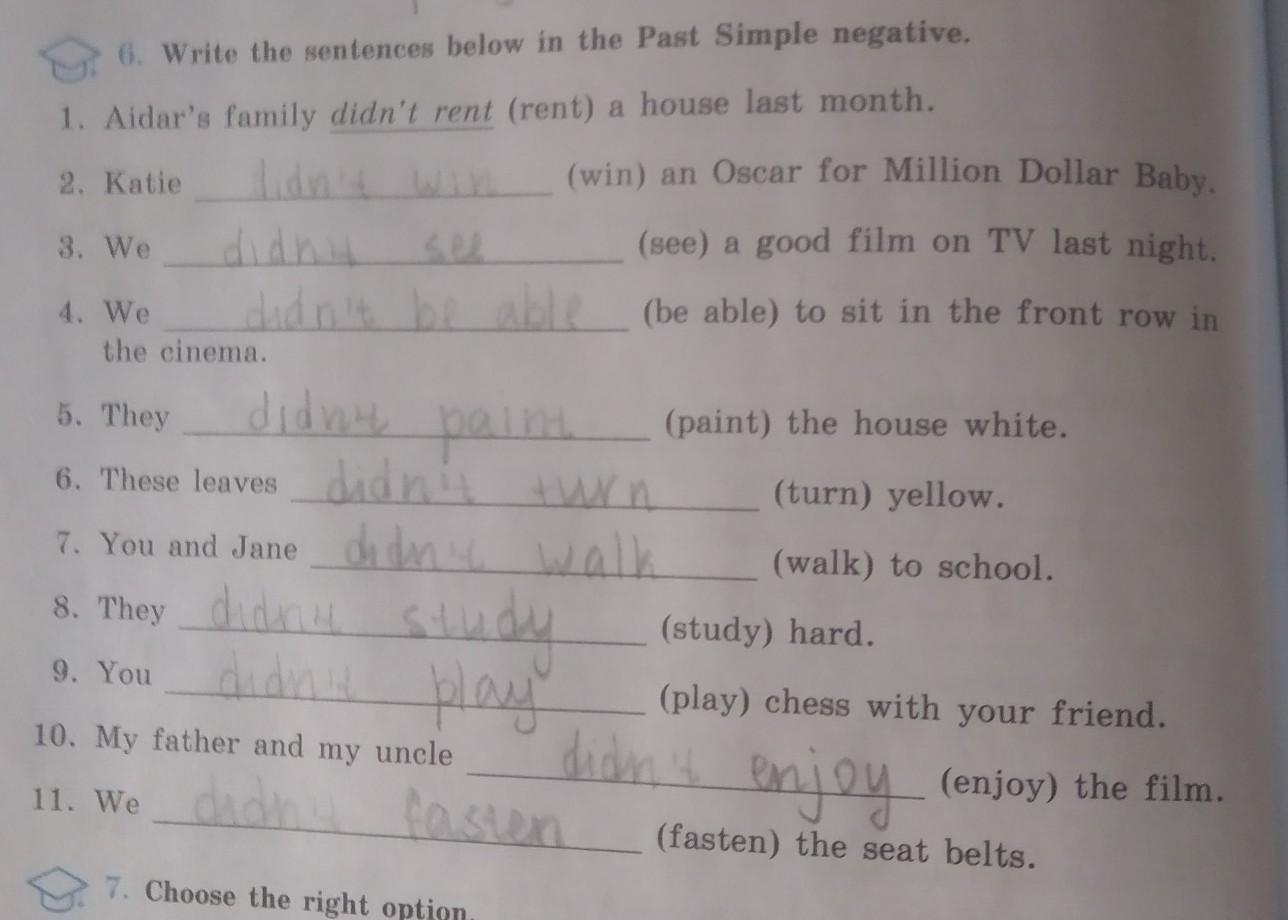 6. Write the sentences below in the Past Simple negative.
1. Aidar's family didn't rent (rent) a house last month.
2. Katie didn't win (win) an Oscar for Million Dollar Baby.
3. We didn't see (see) a good film on TV last night.
4. We didn't be able (be able) to sit in the front row in
the cinema.
5. They didn't paint (paint) the house white.
6. These leaves didn't turn (turn) yellow.
7. You and Jane didn't walk (walk) to school.
8. They didn't study (study) hard.
9. You didn't play (play) chess with your friend.
10. My father and my uncle didn't enjoy (enjoy) the film.
11. We didn't fasten (fasten) the seat belts.
7. Choose the right option.